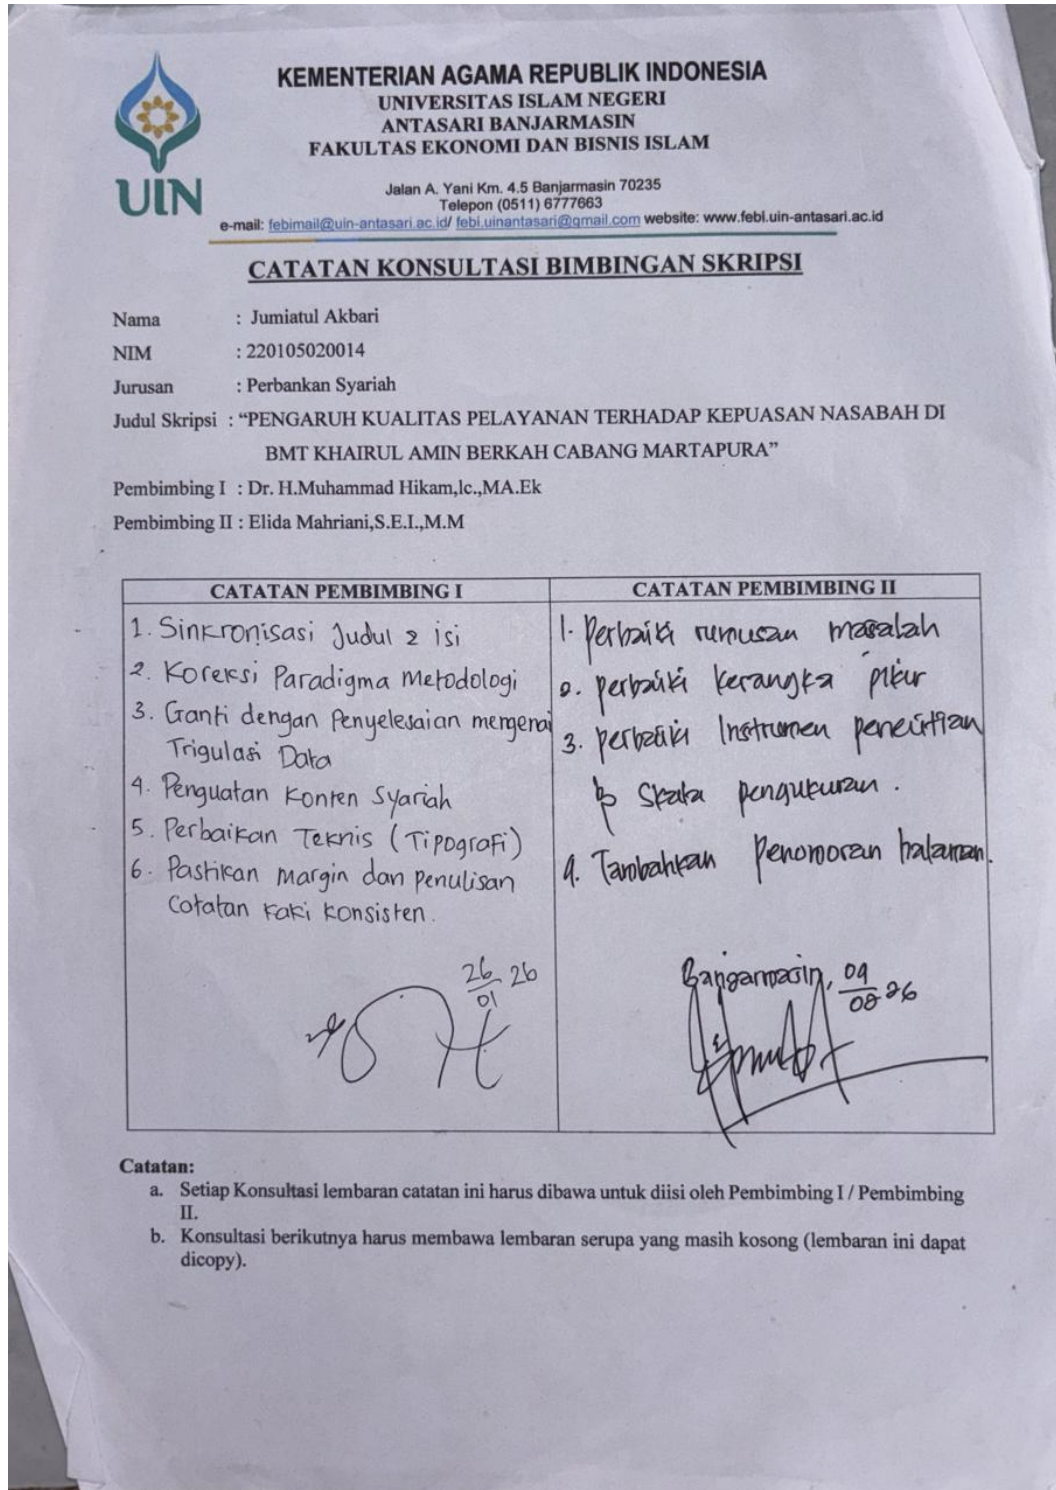 UIN
KEMENTERIAN AGAMA REPUBLIK INDONESIA
UNIVERSITAS ISLAM NEGERI
ANTASARI BANJARMASIN
FAKULTAS EKONOMI DAN BISNIS ISLAM
Jalan A. Yani Km. 4.5 Banjarmasin 70235
Telepon (0511) 6777663
e-mail: febimail@uin-antasari.ac.id/ febi.uinantasari@gmail.com website: www.febi.uin-antasari.ac.id
CATATAN KONSULTASI BIMBINGAN SKRIPSI
Nama : Jumiatul Akbari
NIM : 220105020014
Jurusan : Perbankan Syariah
Judul Skripsi : “PENGARUH KUALITAS PELAYANAN TERHADAP KEPUASAN NASABAH DI
BMT KHAIRUL AMIN BERKAH CABANG MARTAPURA”
Pembimbing I : Dr. H.Muhammad Hikam,lc.,MA.Ek
Pembimbing II : Elida Mahriani,S.E.I.,M.M
CATATAN PEMBIMBING I
1. Sinkronisasi Judul 2 isi
2. Koreksi Paradigma Metodologi
3. Ganti dengan Penyelesaian mengenai
Trigulasi Data
4. Penguatan Konten Syariah
5. Perbaikan Teknis (Tipografi)
6. Pastikan margin dan penulisan
Catatan kaki konsisten.
26/01 26
CATATAN PEMBIMBING II
1. Perbaiki rumusan masalah
2. perbaiki kerangka pikir
3. perbaiki Instrumen penelitian
↳ Skala pengukuran.
4. Tambahkan Penomoran halaman.
Banjarmasin, 09/08 26
Catatan:
a. Setiap Konsultasi lembaran catatan ini harus dibawa untuk diisi oleh Pembimbing I / Pembimbing
II.
b. Konsultasi berikutnya harus membawa lembaran serupa yang masih kosong (lembaran ini dapat
dicopy).